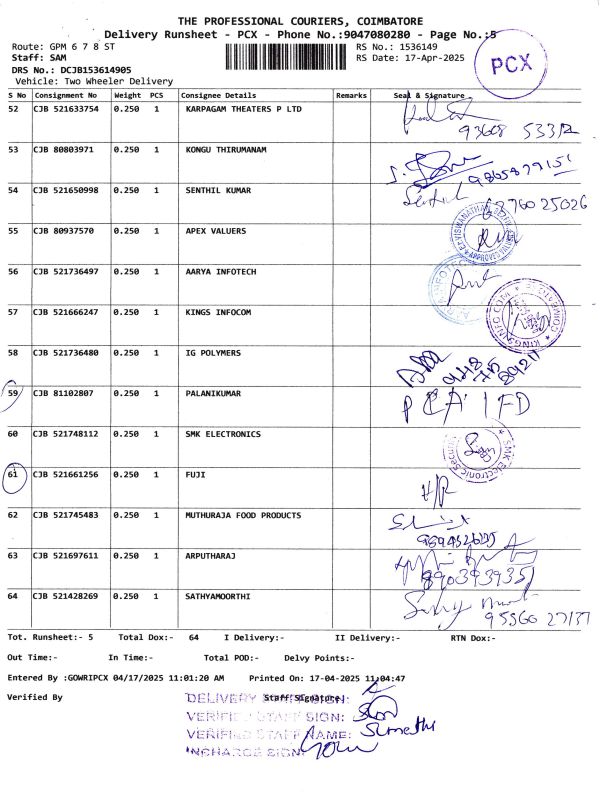 THE PROFESSIONAL COURIERS, COIMBATORE
Delivery Runsheet - PCX - Phone No.:9047080280 - Page No.:5
Route: GPM 6 7 8 ST RS No.: 1536149
Staff: SAM RS Date: 17-Apr-2025
PCX
DRS No.: DCJB153614905
Vehicle: Two Wheeler Delivery
S No Consignment No Weight PCS Consignee Details Remarks Seal & Signature
52 CJB 521633754 0.250 1 KARPAGAM THEATERS P LTD
53 CJB 80803971 0.250 1 KONGU THIRUMANAM
54 CJB 521650998 0.250 1 SENTHIL KUMAR Senthil
55 CJB 80937570 0.250 1 APEX VALUERS
56 CJB 521736497 0.250 1 AARYA INFOTECH
57 CJB 521666247 0.250 1 KINGS INFOCOM
58 CJB 521736480 0.250 1 IG POLYMERS
59 CJB 81102807 0.250 1 PALANIKUMAR
60 CJB 521748112 0.250 1 SMK ELECTRONICS SMK Electronic Security
61 CJB 521661256 0.250 1 FUJI
62 CJB 521745483 0.250 1 MUTHURAJA FOOD PRODUCTS
63 CJB 521697611 0.250 1 ARPUTHARAJ
64 CJB 521428269 0.250 1 SATHYAMOORTHI
Tot. Runsheet:- 5 Total Dox:- 64 I Delivery:- II Delivery:- RTN Dox:-
Out Time:- In Time:- Total POD:- Delvy Points:-
Entered By :GOWRIPCX 04/17/2025 11:01:20 AM Printed On: 17-04-2025 11:04:47
Verified By Staff Signature
DELIVERY STAFF SIGN:
VERIFIED STAFF SIGN:
VERIFIED STAFF NAME: Sumathi
INCHARGE SIGN: